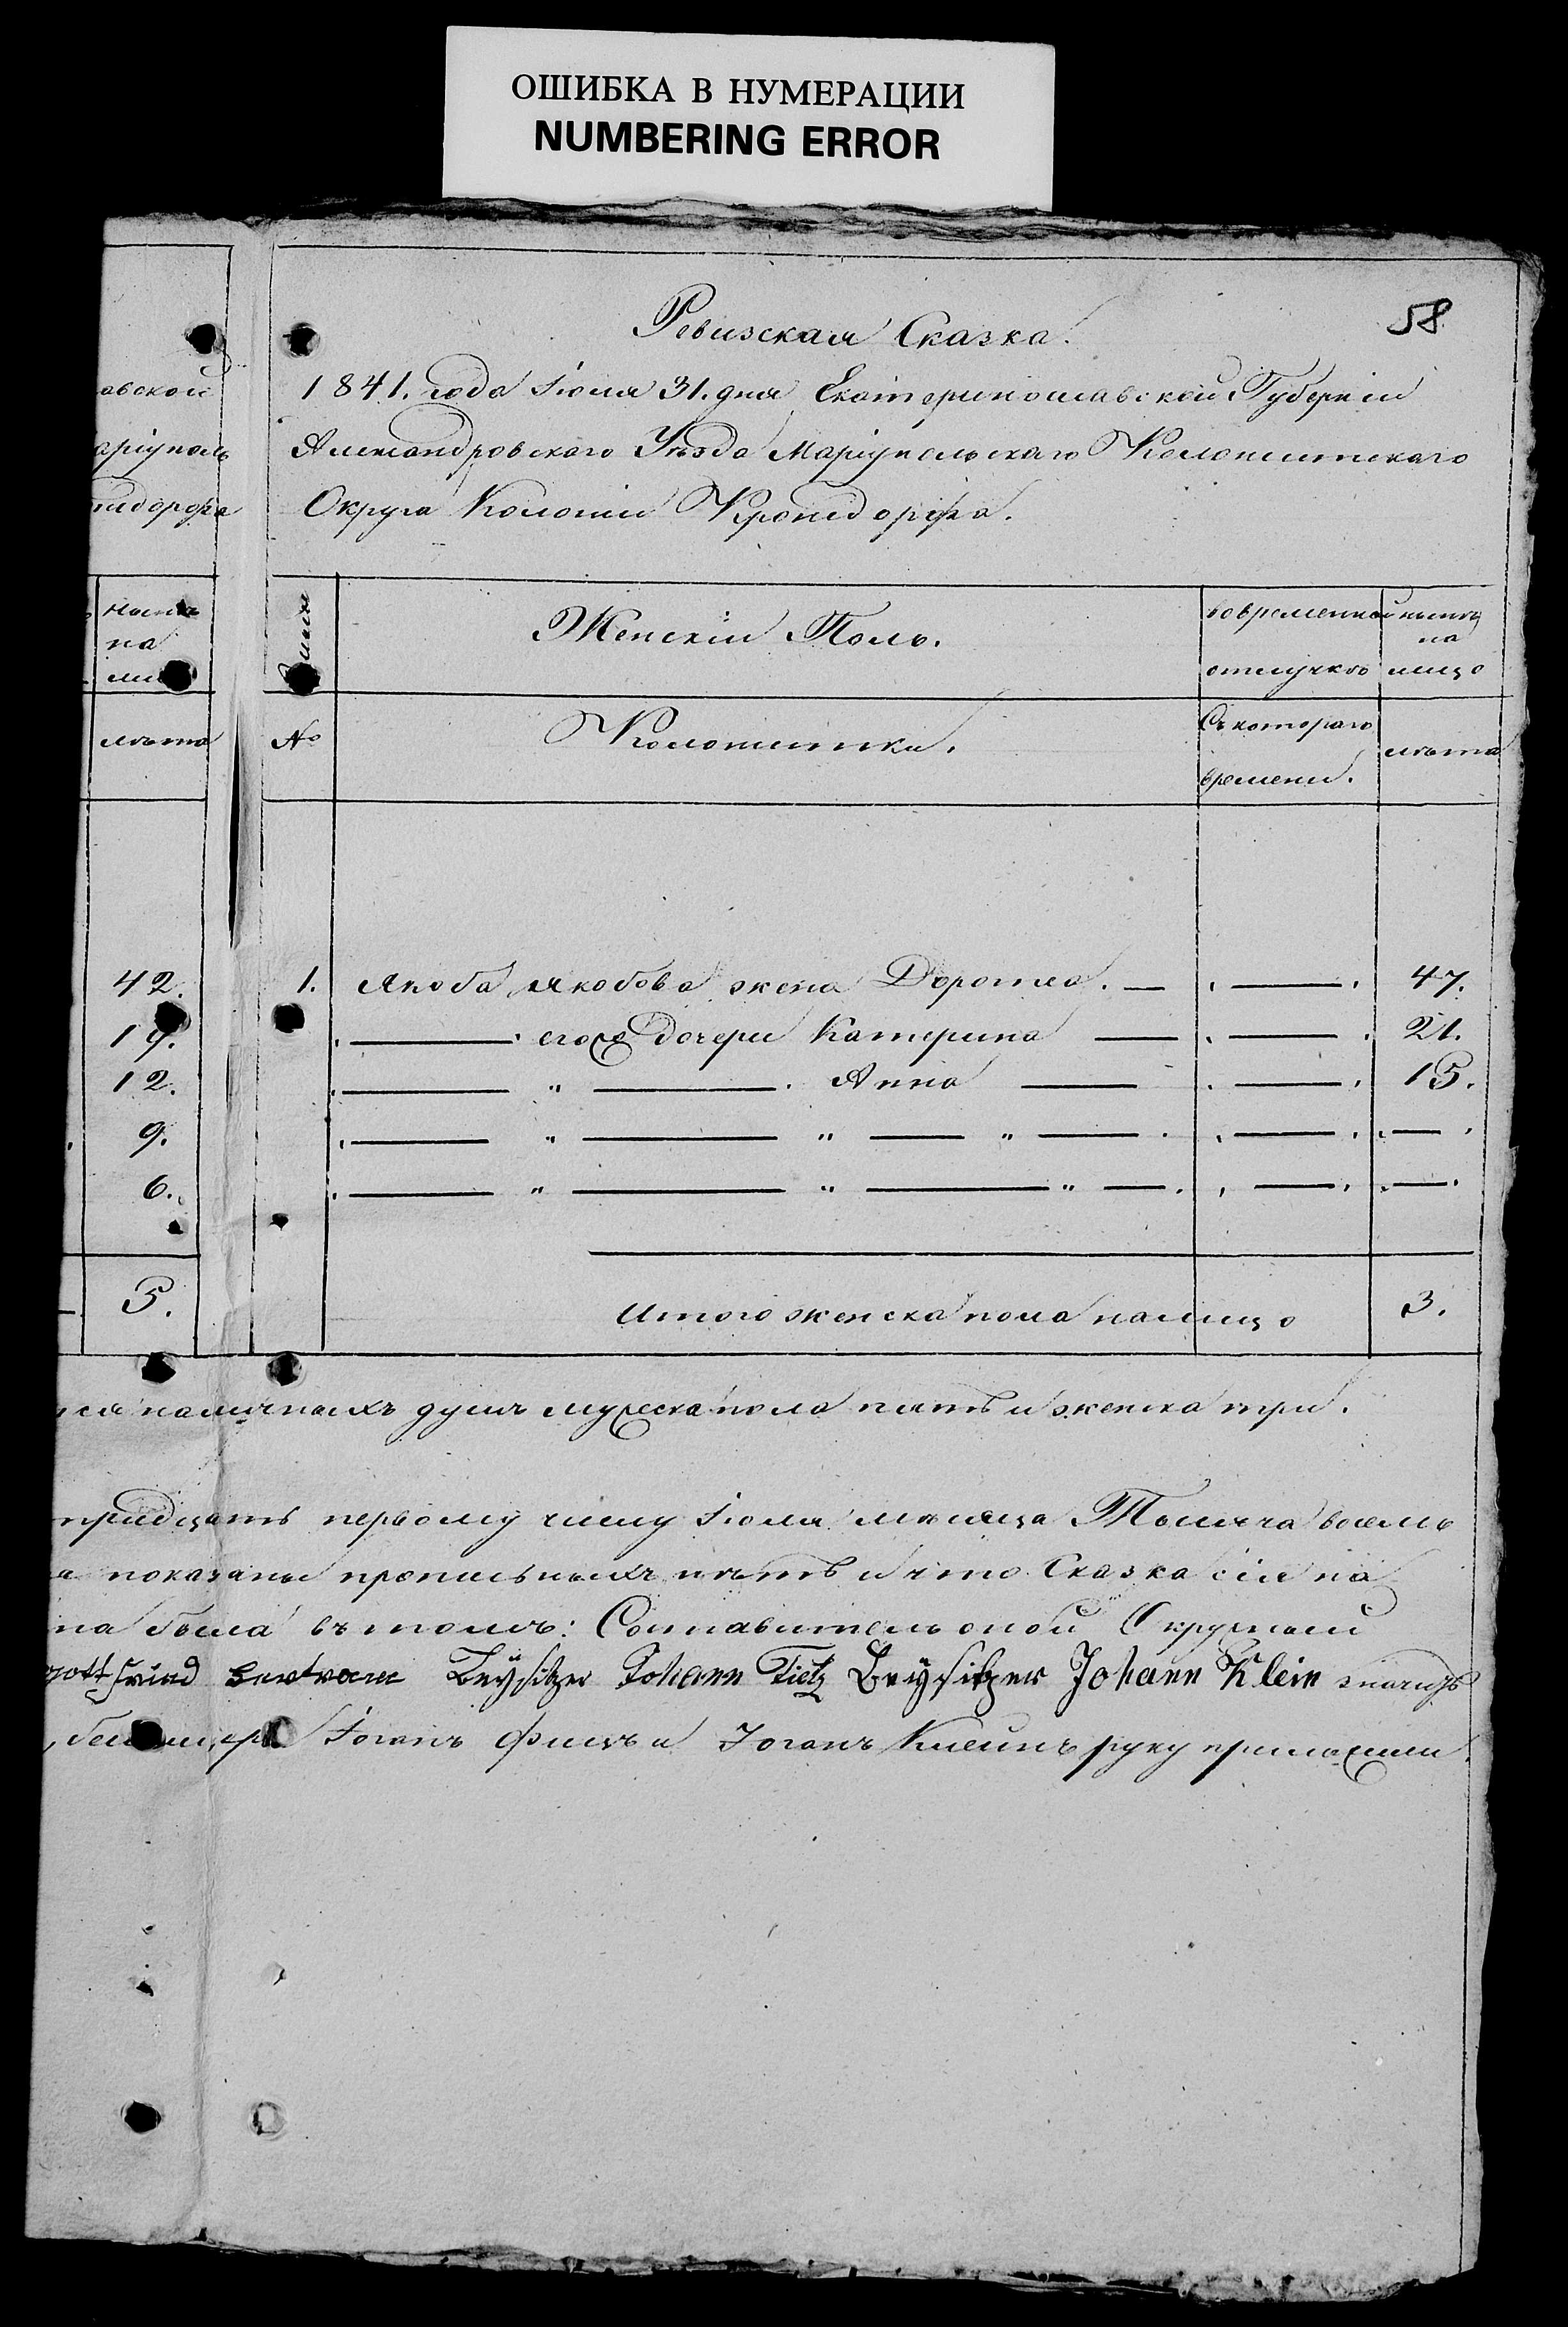 ОШИБКА В НУМЕРАЦИИ
NUMBERING ERROR
58
Ревизская Сказка.
авской
1841. года Іюля 31. дня Екатеринославской Губерніи
аріуполь
Александровского Уѣзда Маріупольскаго Колонистскаго
нсдорфа
Округа Колоніи Кронсдорфа.
на
Женскій Полъ.
во временной
отлучкѣ
на
лицо
лѣта
№
Колонистки.
Съ котораго
времени.
лѣта
42.
1. Якоба Якобова жена Доротеа. — 47.
19.
его дочери Катерина — 21.
12.
" Анна — 15.
9.
6.
5.
Итого женска пола налицо 3.
наличныхъ душъ мужеска пола пять и женска три.
тридцать первому числу Іюля мѣсяца Тысяча восемь
показаны прописныхъ нѣтъ и что Сказка сія на
на была въ томъ: Составитель оной Окружный
gottfried Bertram Beysitzer Johann Tietz Beysitzer Johann Klein значитъ
Іоганъ Фицъ и Іоганъ Клейнъ руку приложили.